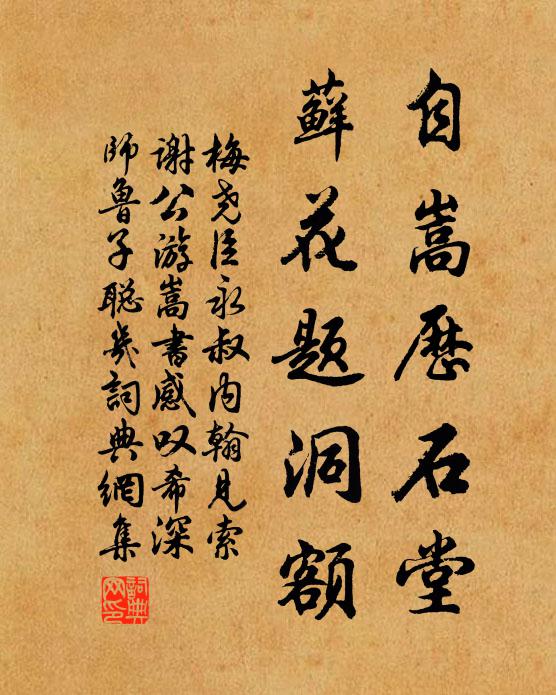 自嵩歷石堂
蘚花题洞額
梅尧臣永叔内翰見索
谢公游嵩書感叹希深
師魯子聪幾詞典網集
詞典网印